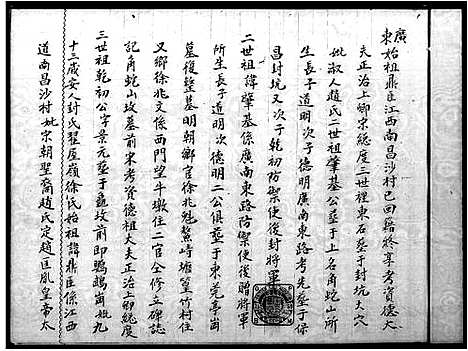 廣
東始祖鼎臣江西南昌沙村已回籍終享考資德大
夫正治上卿宋總度三世裡東石塟于封坑大穴
妣淑人趙氏二世祖肇基公塟于上名角蛇山所
生長子道明次子德明廣南東路考先塟于保
昌封坑又次子乾初防禦使後封將軍
二世祖諱肇基係廣南東路防禦使後贈將軍
所生長子道明次德明二公俱塟于東莞亭崗
墓後豎墓明朝鄉官徐北魁鰲峙塘篁竹村住
又鄉徐北文係西門望牛墩住二官全修立碑誌
記角蛇山坟墓前宋考資德祖大夫正治上卿總度
三世祖乾初公字景元塟于龜坟前即鸚鵡崗妣九
十三歲安人封氏翟屋嶺徐氏始祖諱鼎臣係江西
道南昌沙村妣宗朝聖裔趙氏定趙匡胤皇帝太